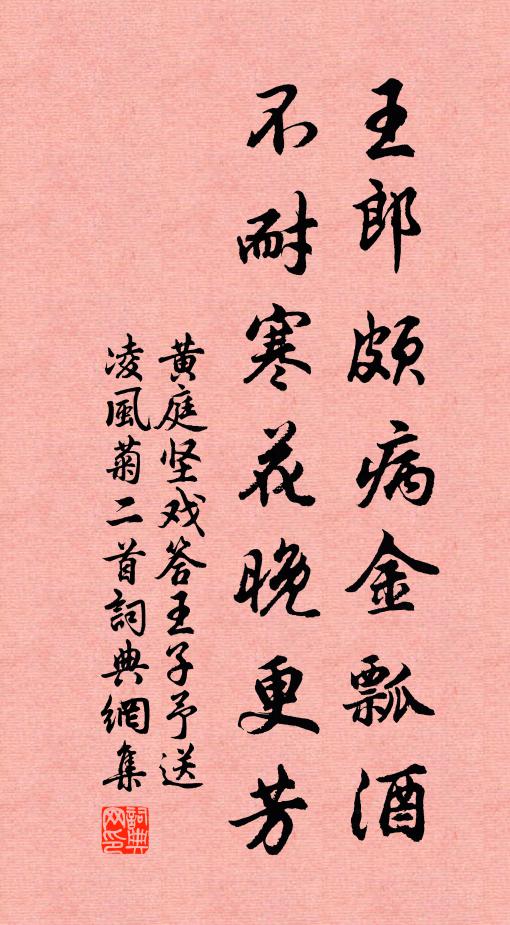 王郎頗病金瓢酒
不耐寒花晚更芳
黄庭坚戏答王子予送
凌風菊二首詞典網集
詞典网印